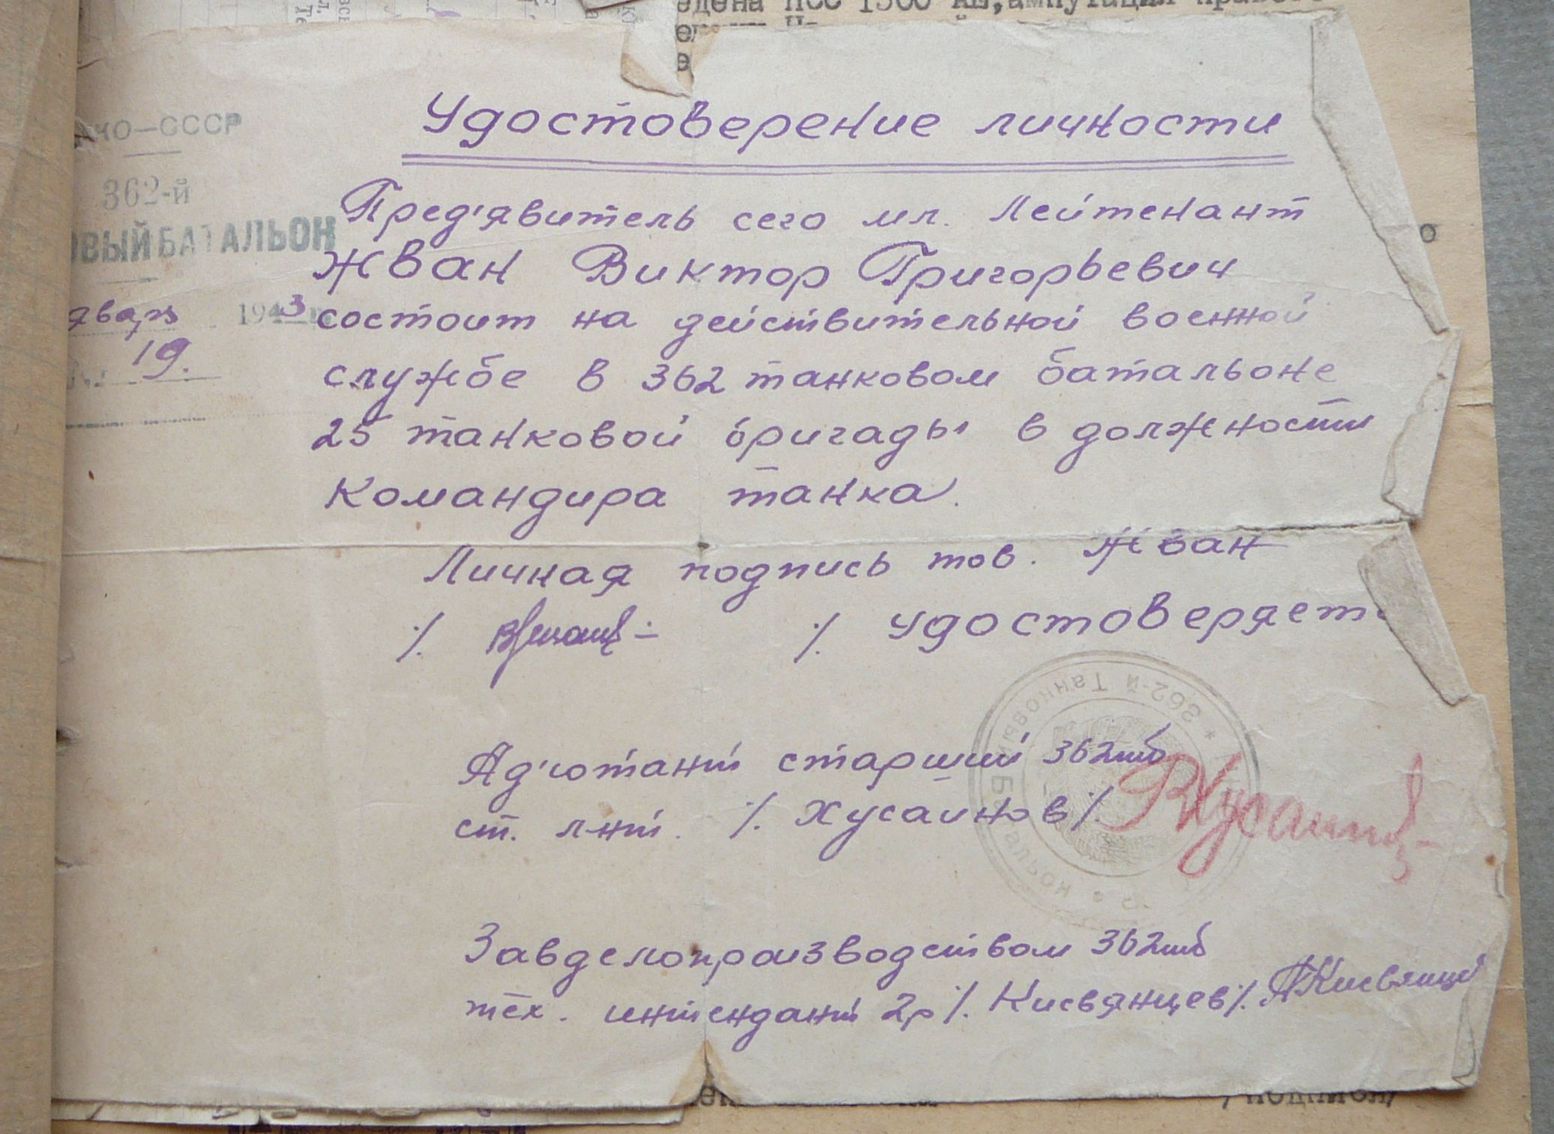 ведена ПСС 1500 АЕ, ампутация
НО—СССР
362-й
ОВЫЙ БАТАЛЬОН
января 1943
19.
Удостоверение личности
Пред'явитель сего мл. Лейтенант
Жван Виктор Григорьевич
состоит на действительной военной
службе в 362 танковом батальоне
25 танковой бригады в должности
Командира танка.
Личная подпись тов. Жван
/. /. удостоверяет
* 362-й Танковый Батальон *
Ад'ютант старший 362тб
ст. л-нт. /. Хусаинов /.
Завделопроизводством 362тб
тех. интендант 2р /. Кисвянцев /.